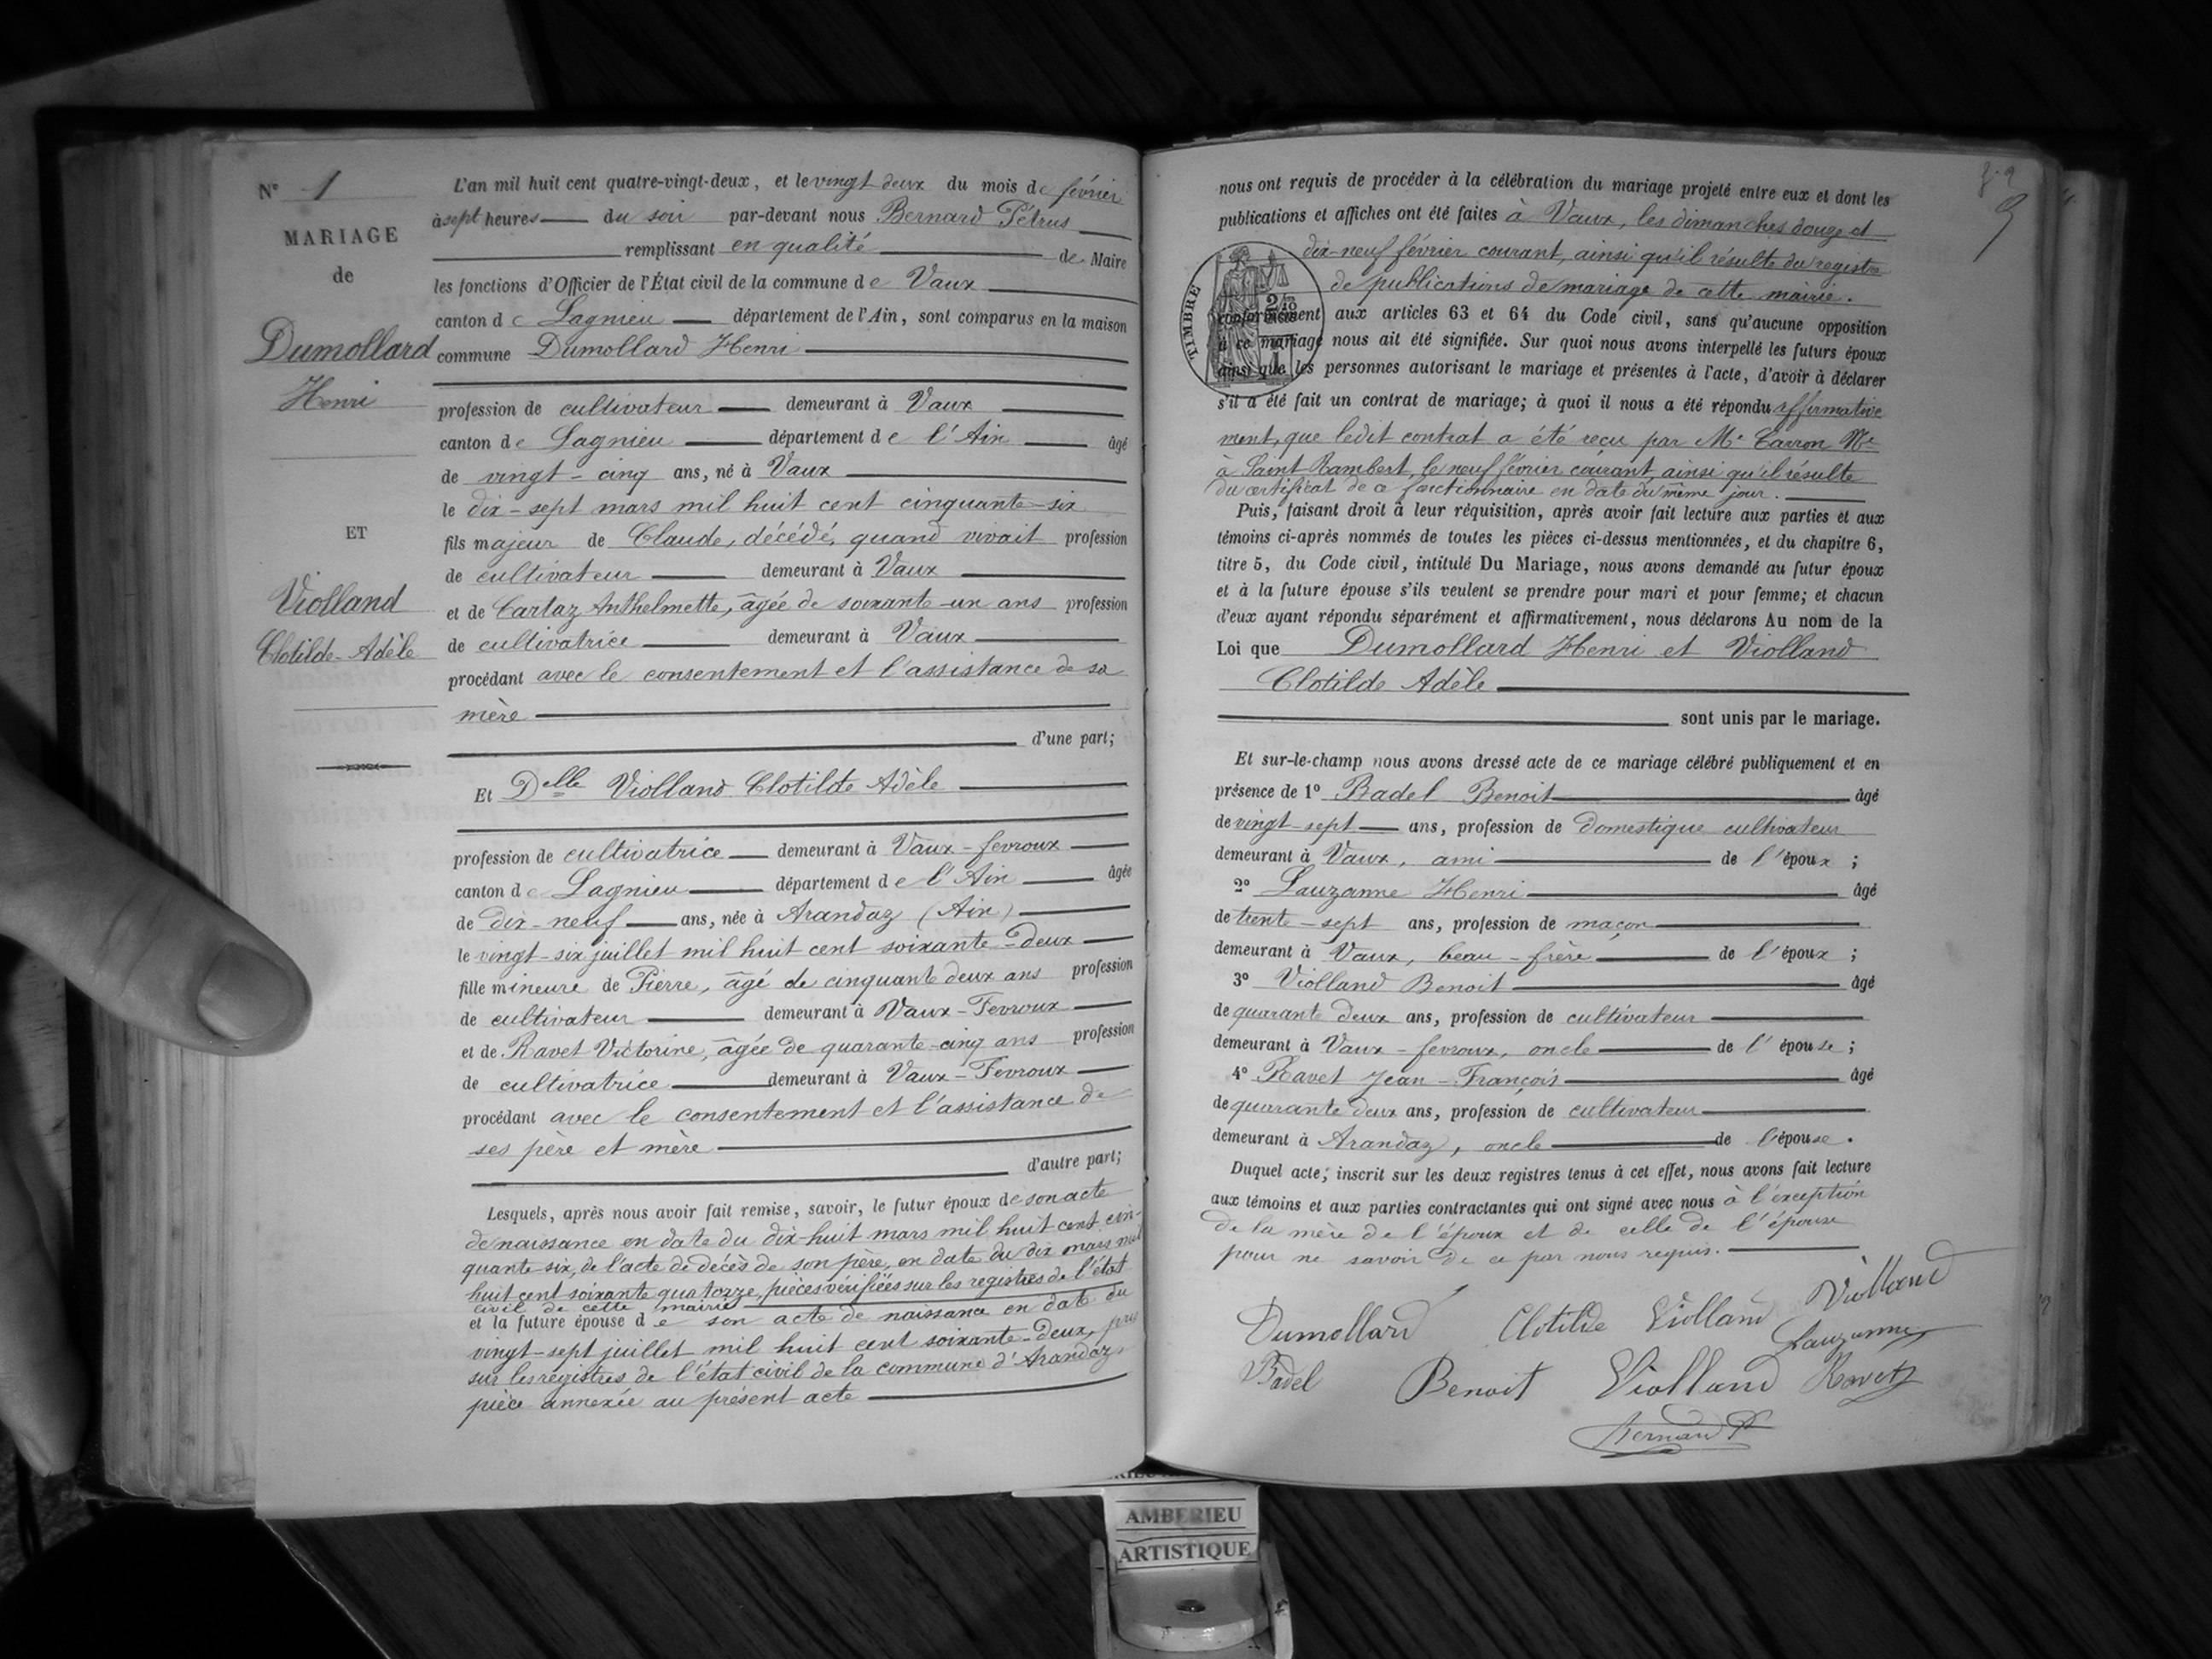 N° 1
MARIAGE
de
Dumollard
Henri
ET
Violland
Clotilde-Adèle
L'an mil huit cent quatre-vingt-deux, et le vingt deux du mois de février
à sept heures du soir par-devant nous Bernard Pétrus
remplissant en qualité de Maire
les fonctions d'Officier de l'État civil de la commune de Vaux
canton de Lagnieu département de l'Ain, sont comparus en la maison
commune Dumollard Henri
profession de cultivateur demeurant à Vaux
canton de Lagnieu département de l'Ain âgé
de vingt-cinq ans, né à Vaux
le dix-sept mars mil huit cent cinquante-six
fils majeur de Claude, décédé, quand vivait profession
de cultivateur demeurant à Vaux
et de Cartaz Anthelmette, âgée de soixante-un ans profession
de cultivatrice demeurant à Vaux
procédant avec le consentement et l'assistance de sa
mère
d'une part;
Et Delle Violland Clotilde Adèle
profession de cultivatrice demeurant à Vaux-fevroux
canton de Lagnieu département de l'Ain âgée
de dix-neuf ans, née à Arandaz (Ain)
le vingt-six juillet mil huit cent soixante-deux
fille mineure de Pierre, âgé de cinquante deux ans profession
de cultivateur demeurant à Vaux-Fevroux
et de Ravet Victorine, âgée de quarante-cinq ans profession
de cultivatrice demeurant à Vaux-Fevroux
procédant avec le consentement et l'assistance de
ses père et mère
d'autre part;
Lesquels, après nous avoir fait remise, savoir, le futur époux de son acte
de naissance en date du dix-huit mars mil huit cent cin-
quante-six, de l'acte de décès de son père, en date du dix mars mil
huit cent soixante quatorze, pièces vérifiées sur les registres de l'état
civil de cette mairie
et la future épouse de son acte de naissance en date du
vingt-sept juillet mil huit cent soixante-deux, pris
sur les registres de l'état civil de la commune d'Arandaz,
pièce annexée au présent acte
nous ont requis de procéder à la célébration du mariage projeté entre eux et dont les
publications et affiches ont été faites à Vaux, les dimanches douze et
dix-neuf février courant, ainsi qu'il résulte du registre
de publications de mariage de cette mairie.
TIMBRE
conformément aux articles 63 et 64 du Code civil, sans qu'aucune opposition
à ce mariage nous ait été signifiée. Sur quoi nous avons interpellé les futurs époux
ainsi que les personnes autorisant le mariage et présentes à l'acte, d'avoir à déclarer
s'il a été fait un contrat de mariage; à quoi il nous a été répondu affirmative
ment, que ledit contrat a été reçu par Me Carron Nre
à Saint Rambert, le neuf février courant, ainsi qu'il résulte
du certificat de ce fonctionnaire en date du même jour.
Puis, faisant droit à leur réquisition, après avoir fait lecture aux parties et aux
témoins ci-après nommés de toutes les pièces ci-dessus mentionnées, et du chapitre 6,
titre 5, du Code civil, intitulé Du Mariage, nous avons demandé au futur époux
et à la future épouse s'ils veulent se prendre pour mari et pour femme; et chacun
d'eux ayant répondu séparément et affirmativement, nous déclarons Au nom de la
Loi que Dumollard Henri et Violland
Clotilde Adèle
sont unis par le mariage.
Et sur-le-champ nous avons dressé acte de ce mariage célébré publiquement et en
présence de 1° Badel Benoit âgé
de vingt-sept ans, profession de domestique cultivateur
demeurant à Vaux, ami de l'époux;
2° Lauzanne Henri âgé
de trente-sept ans, profession de maçon
demeurant à Vaux, beau-frère de l'époux;
3° Violland Benoit âgé
de quarante deux ans, profession de cultivateur
demeurant à Vaux-fevroux, oncle de l'épouse;
4° Ravet Jean-François âgé
de quarante deux ans, profession de cultivateur
demeurant à Arandaz, oncle de l'épouse.
Duquel acte, inscrit sur les deux registres tenus à cet effet, nous avons fait lecture
aux témoins et aux parties contractantes qui ont signé avec nous à l'exception
de la mère de l'époux et de celle de l'épouse
pour ne savoir de ce par nous requis.
Dumollard Clotilde Violland Violland
Lauzanne
Badel Benoit Violland Ravet
Bernard P
AMBERIEU
ARTISTIQUE